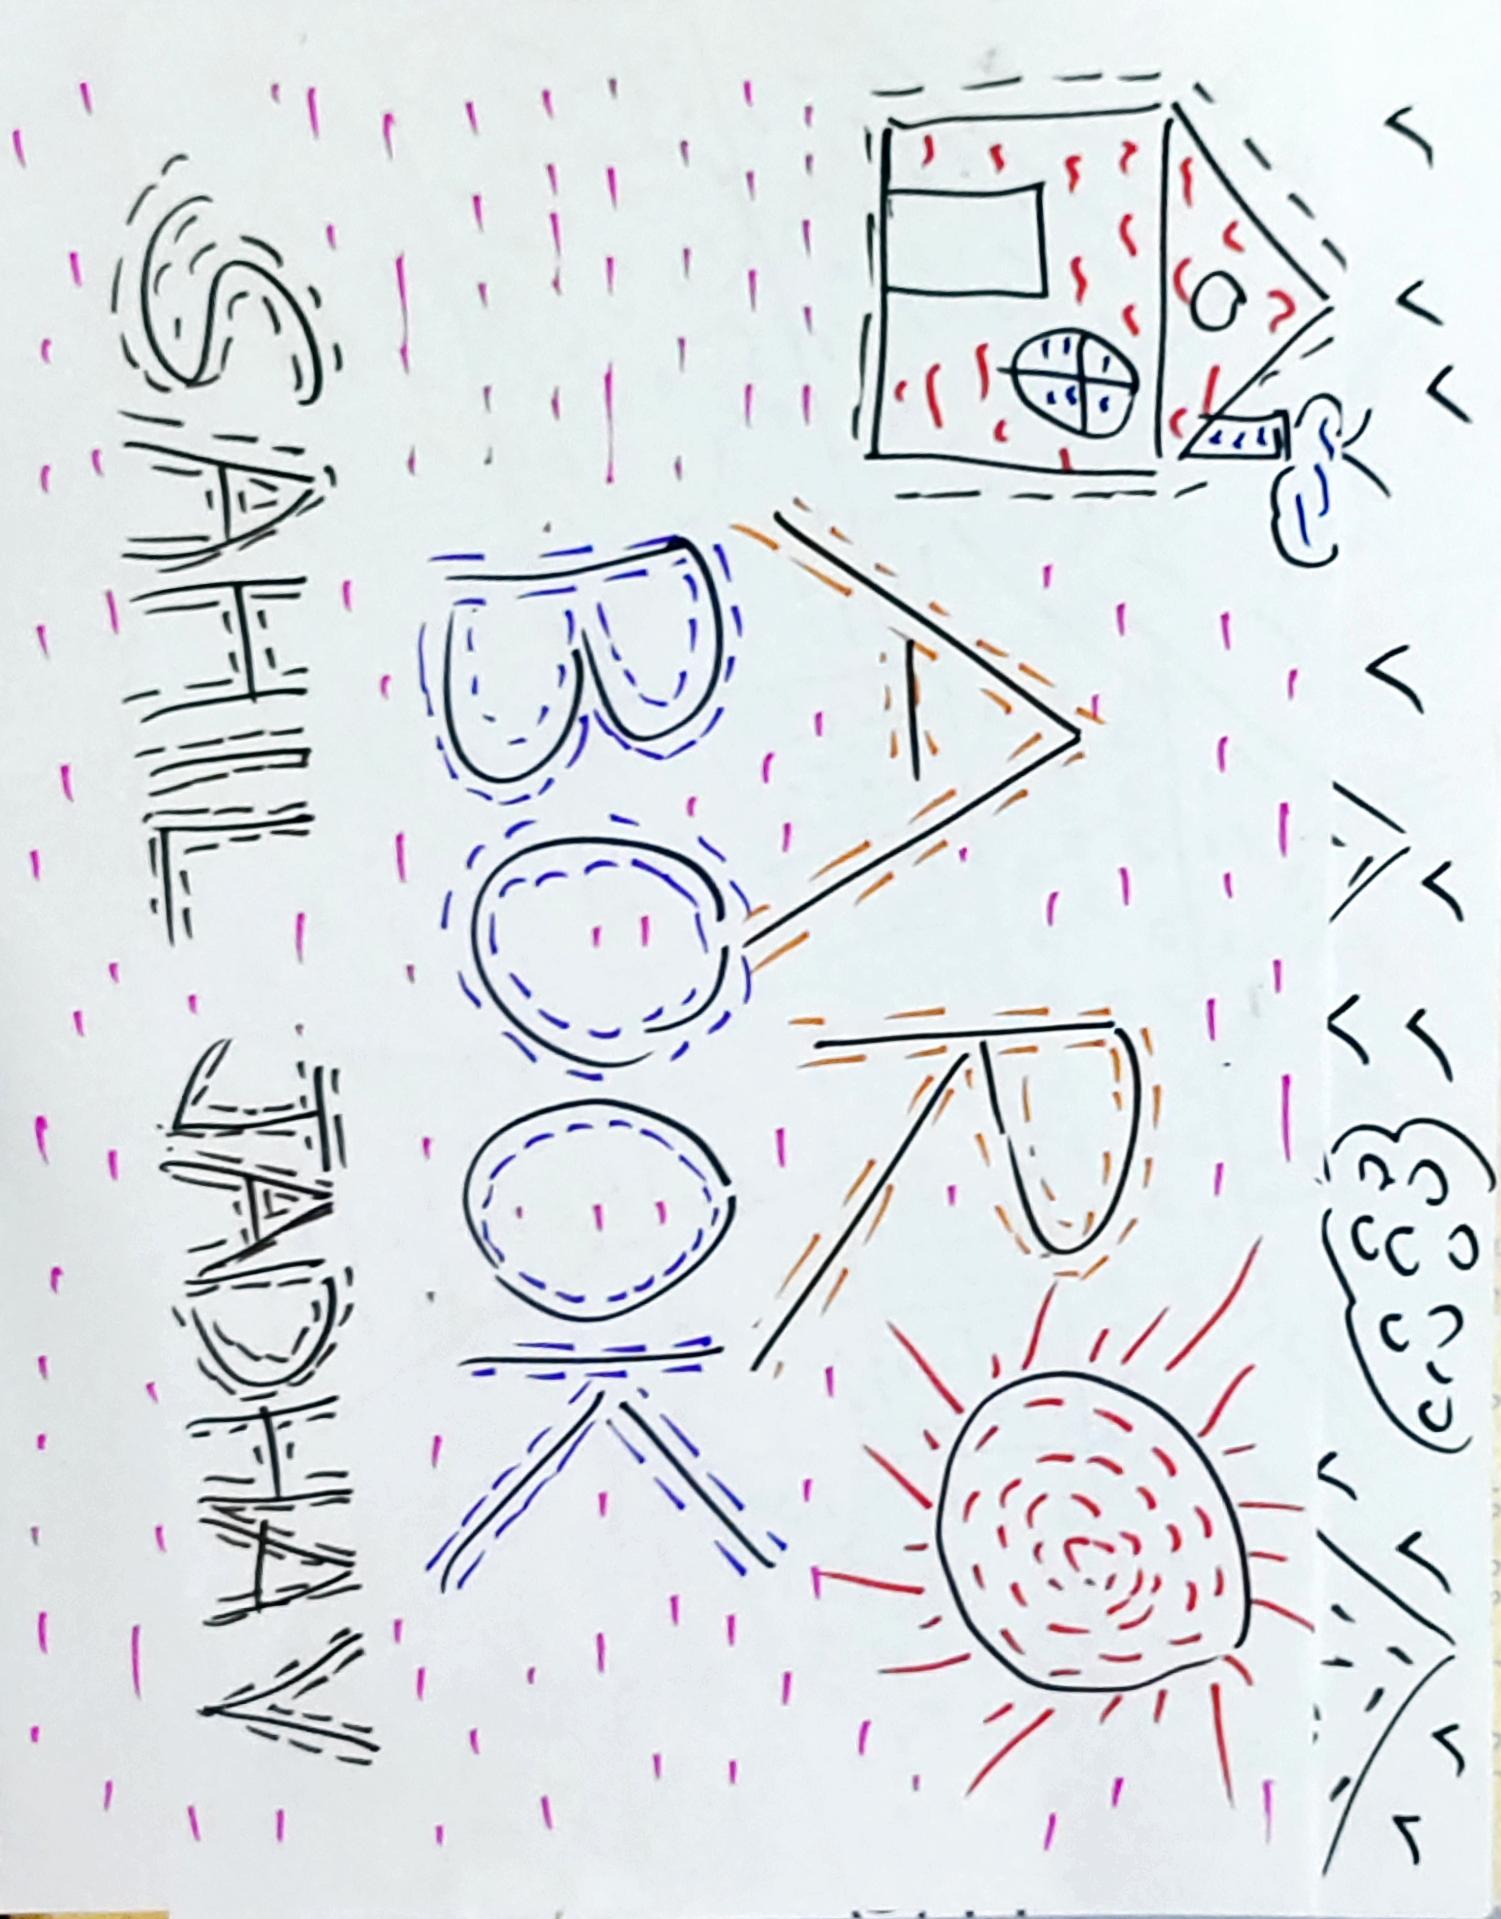 AR
BOOK
SAHIL JADHAV